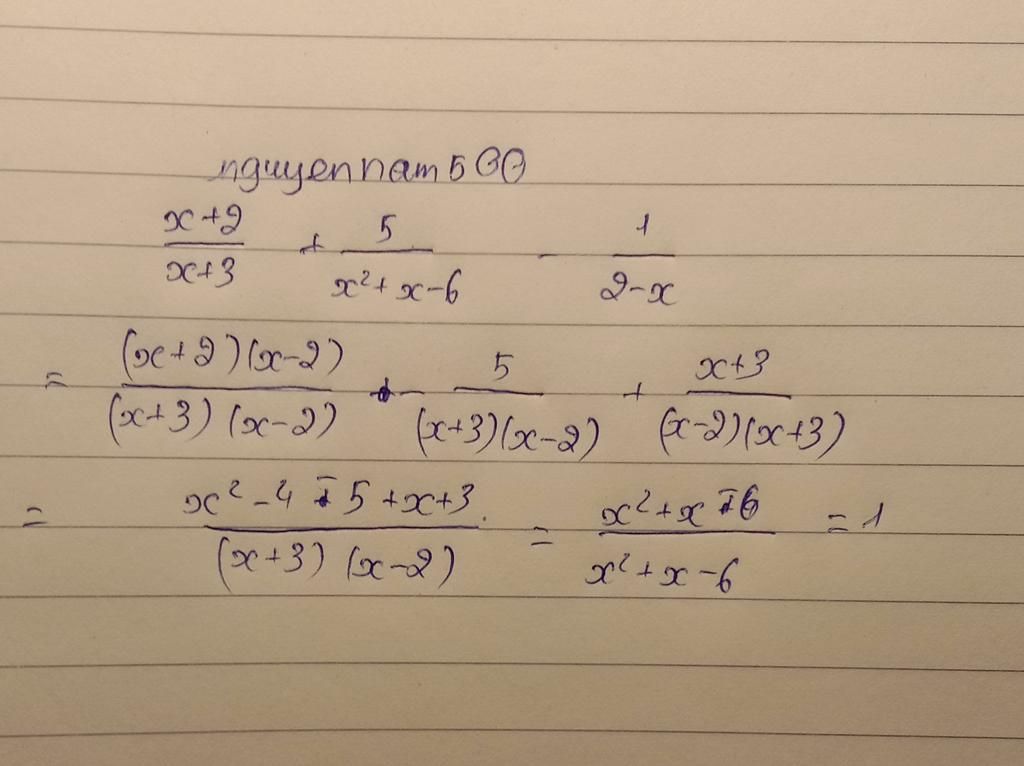 nguyennam500
x+2/x+3 + 5/x²+x-6 - 1/2-x
= (x+2)(x-2)/(x+3)(x-2) - 5/(x+3)(x-2) + x+3/(x-2)(x+3)
= x²-4-5+x+3/(x+3)(x-2) = x²+x-6/x²+x-6 = 1